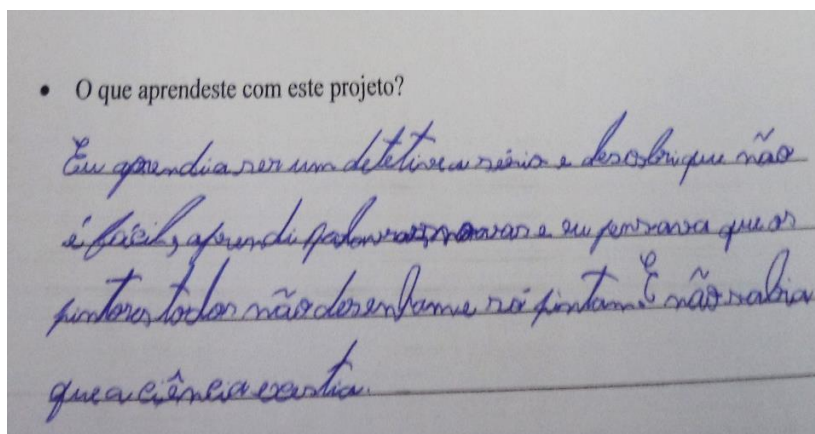 • O que aprendeste com este projeto?
Eu aprendi a ser um detetive a sério e descobri que não
é fácil, aprendi palavras novas e eu pensava que os
pintores todos não desenham e só pintam. E não sabia
que a ciência existia.